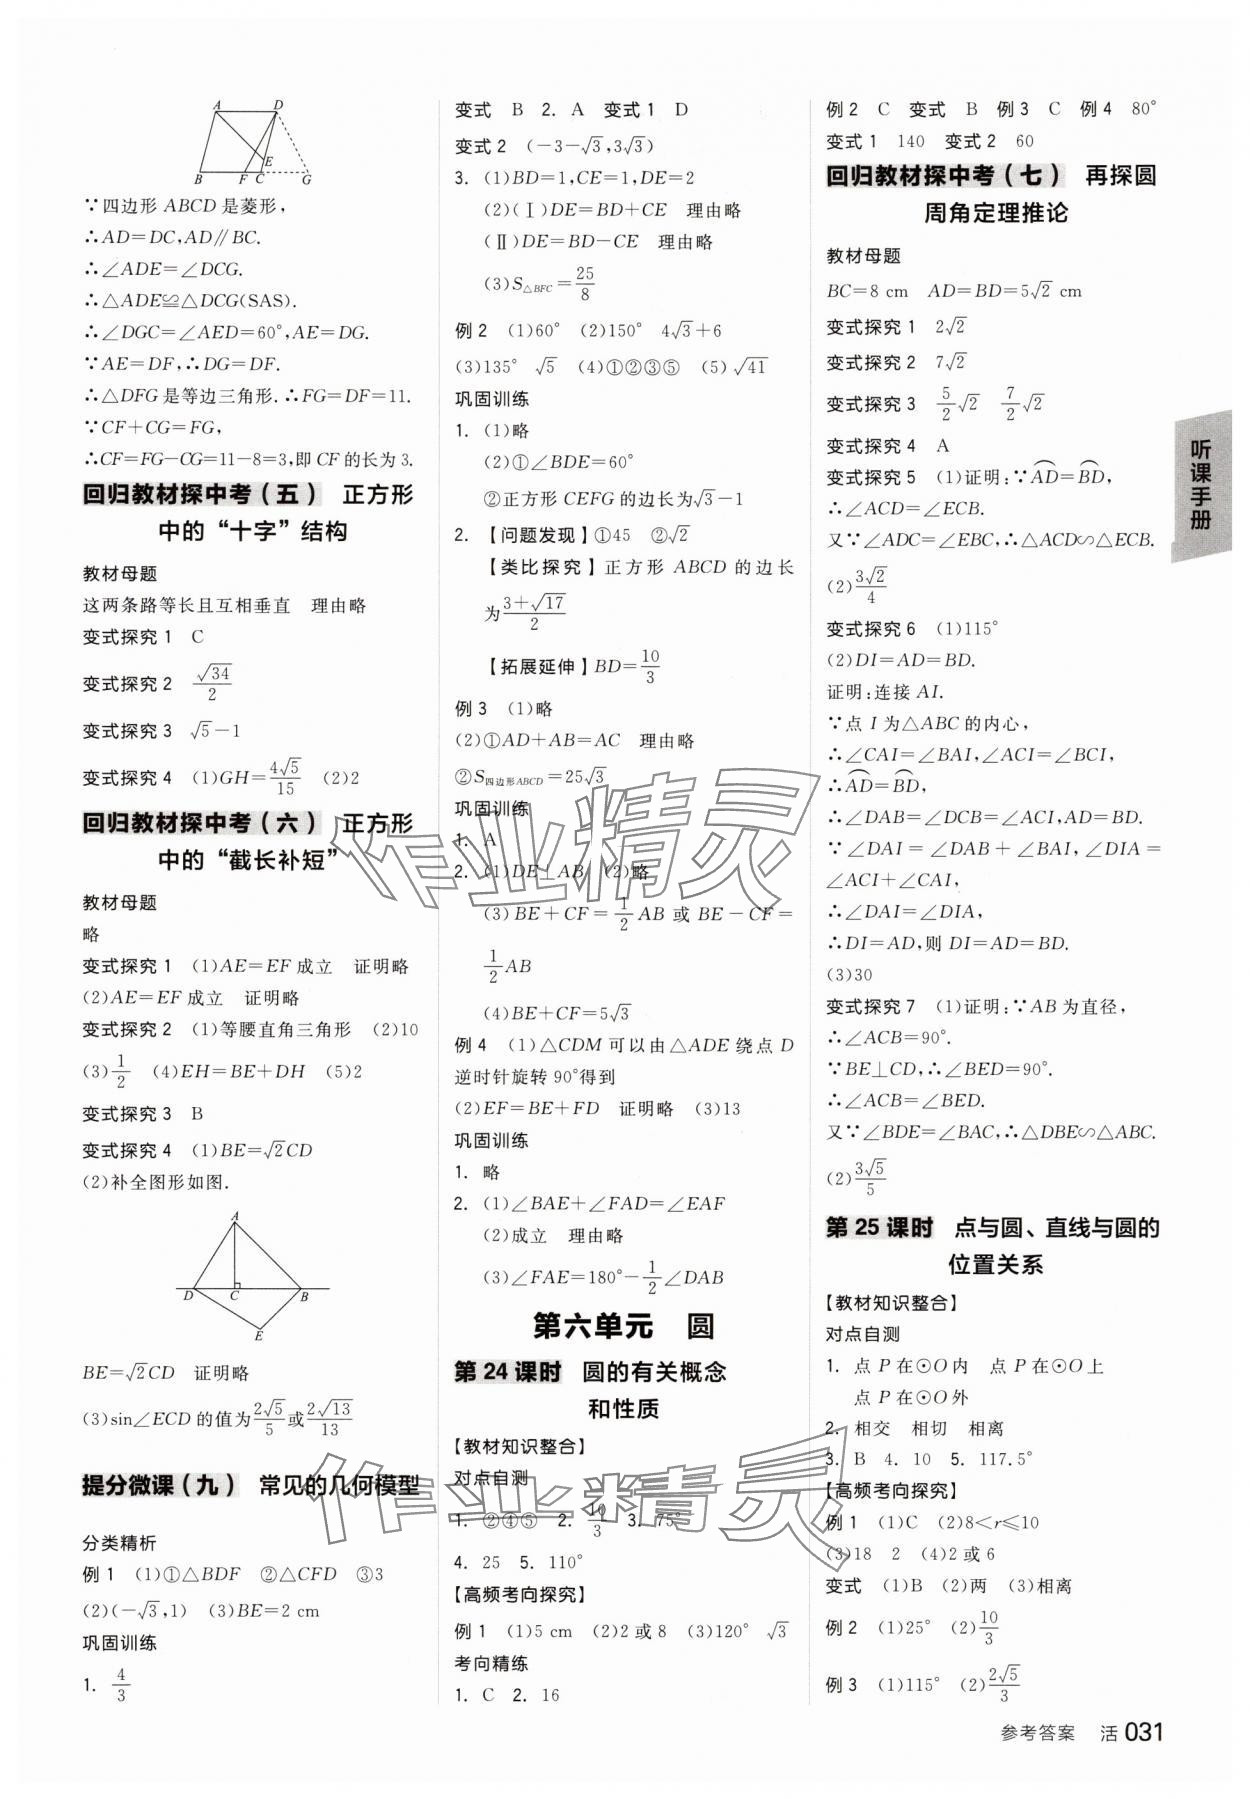 A D
E
B F C G
∵四边形 ABCD 是菱形,
∴AD=DC,AD∥BC.
∴∠ADE=∠DCG.
∴△ADE≌△DCG(SAS).
∴∠DGC=∠AED=60°,AE=DG.
∵AE=DF,∴DG=DF.
∴△DFG 是等边三角形.∴FG=DF=11.
∵CF+CG=FG,
∴CF=FG-CG=11-8=3,即 CF 的长为 3.
回归教材探中考(五) 正方形
中的“十字”结构
教材母题
这两条路等长且互相垂直 理由略
变式探究 1 C
变式探究 2 √34/2
变式探究 3 √5-1
变式探究 4 (1)GH=4√5/15 (2)2
回归教材探中考(六) 正方形
中的“截长补短”
教材母题
略
变式探究 1 (1)AE=EF 成立 证明略
(2)AE=EF 成立 证明略
变式探究 2 (1)等腰直角三角形 (2)10
(3)1/2 (4)EH=BE+DH (5)2
变式探究 3 B
变式探究 4 (1)BE=√2CD
(2)补全图形如图.
A
D C B
E
BE=√2CD 证明略
(3)sin∠ECD 的值为2√5/5或2√13/13
提分微课(九) 常见的几何模型
分类精析
例 1 (1)①△BDF ②△CFD ③3
(2)(-√3,1) (3)BE=2 cm
巩固训练
1. 4/3
变式 B 2. A 变式 1 D
变式 2 (-3-√3,3√3)
3. (1)BD=1,CE=1,DE=2
(2)(Ⅰ)DE=BD+CE 理由略
(Ⅱ)DE=BD-CE 理由略
(3)S△BFC=25/8
例 2 (1)60° (2)150° 4√3+6
(3)135° √5 (4)①②③⑤ (5)√41
巩固训练
1. (1)略
(2)①∠BDE=60°
②正方形 CEFG 的边长为√3-1
2. 【问题发现】①45 ②√2
【类比探究】正方形 ABCD 的边长
为(3+√17)/2
【拓展延伸】BD=10/3
例 3 (1)略
(2)①AD+AB=AC 理由略
②S四边形ABCD=25√3
巩固训练
1. A
2. (1)DE⊥AB (2)略
(3)BE+CF=1/2AB 或 BE-CF=
1/2AB
(4)BE+CF=5√3
例 4 (1)△CDM 可以由△ADE 绕点 D
逆时针旋转 90°得到
(2)EF=BE+FD 证明略 (3)13
巩固训练
1. 略
2. (1)∠BAE+∠FAD=∠EAF
(2)成立 理由略
(3)∠FAE=180°-1/2∠DAB
第六单元 圆
第 24 课时 圆的有关概念
和性质
【教材知识整合】
对点自测
1. ②④⑤ 2. 10/3 3. 75°
4. 25 5. 110°
【高频考向探究】
例 1 (1)5 cm (2)2 或 8 (3)120° √3
考向精练
1. C 2. 16
例 2 C 变式 B 例 3 C 例 4 80°
变式 1 140 变式 2 60
回归教材探中考(七) 再探圆
周角定理推论
教材母题
BC=8 cm AD=BD=5√2 cm
变式探究 1 2√2
变式探究 2 7√2
变式探究 3 5/2√2 7/2√2
变式探究 4 A
变式探究 5 (1)证明:∵A͡D=B͡D,
∴∠ACD=∠ECB.
又∵∠ADC=∠EBC,∴△ACD∽△ECB.
(2)3√2/4
变式探究 6 (1)115°
(2)DI=AD=BD.
证明:连接 AI.
∵点 I 为△ABC 的内心,
∴∠CAI=∠BAI,∠ACI=∠BCI,
∴A͡D=B͡D,
∴∠DAB=∠DCB=∠ACI,AD=BD.
∵∠DAI=∠DAB+∠BAI,∠DIA=
∠ACI+∠CAI,
∴∠DAI=∠DIA,
∴DI=AD,则 DI=AD=BD.
(3)30
变式探究 7 (1)证明:∵AB 为直径,
∴∠ACB=90°.
∵BE⊥CD,∴∠BED=90°.
∴∠ACB=∠BED.
又∵∠BDE=∠BAC,∴△DBE∽△ABC.
(2)3√5/5
第 25 课时 点与圆、直线与圆的
位置关系
【教材知识整合】
对点自测
1. 点 P 在⊙O 内 点 P 在⊙O 上
点 P 在⊙O 外
2. 相交 相切 相离
3. B 4. 10 5. 117.5°
【高频考向探究】
例 1 (1)C (2)8<r≤10
(3)18 2 (4)2 或 6
变式 (1)B (2)两 (3)相离
例 2 (1)25° (2)10/3
例 3 (1)115° (2)2√5/3
听课手册
参考答案 活 031
作业精灵
作业精灵